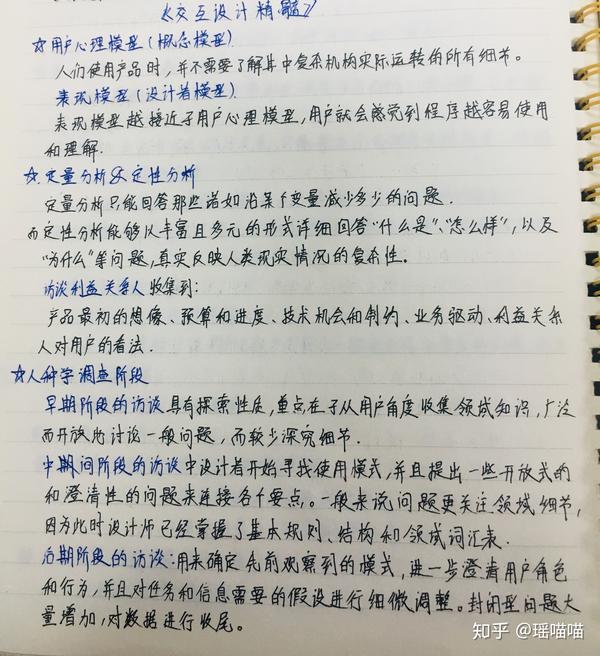 《交互设计精髓》
☆用户心理模型(概念模型)
人们使用产品时,并不需要了解其中复杂机构实际运转的所有细节。
表现模型(设计者模型)
表现模型越接近于用户心理模型,用户就会感觉到程序越容易使用
和理解.
☆定量分析&定性分析
定量分析只能回答那些诸如沿某个变量减少多少的问题.
而定性分析能够以丰富且多元的形式详细回答“什么是”、“怎么样”,以及
“为什么”等问题,真实反映人类现实情况的复杂性。
访谈利益关系人收集到:
产品最初的想像、预算和进度、技术机会和制约、业务驱动、利益关系
人对用户的看法.
☆人种学调查阶段
早期阶段的访谈具有探索性质,重点在于从用户角度收集领域知识,广泛
而开放地讨论一般问题,而较少深究细节.
中期间阶段的访谈中设计者开始寻找使用模式,并且提出一些开放式的
和澄清性的问题来连接各个要点。一般来说问题更关注领域细节,
因为此时设计师已经掌握了基本规则、结构和领域词汇表.
后期阶段的访谈:用来确定先前观察到的模式,进一步澄清用户角色
和行为,并且对任务和信息需要的假设进行细微调整。封闭型问题大
量增加,对数据进行收尾。
知乎 @瑶喵喵